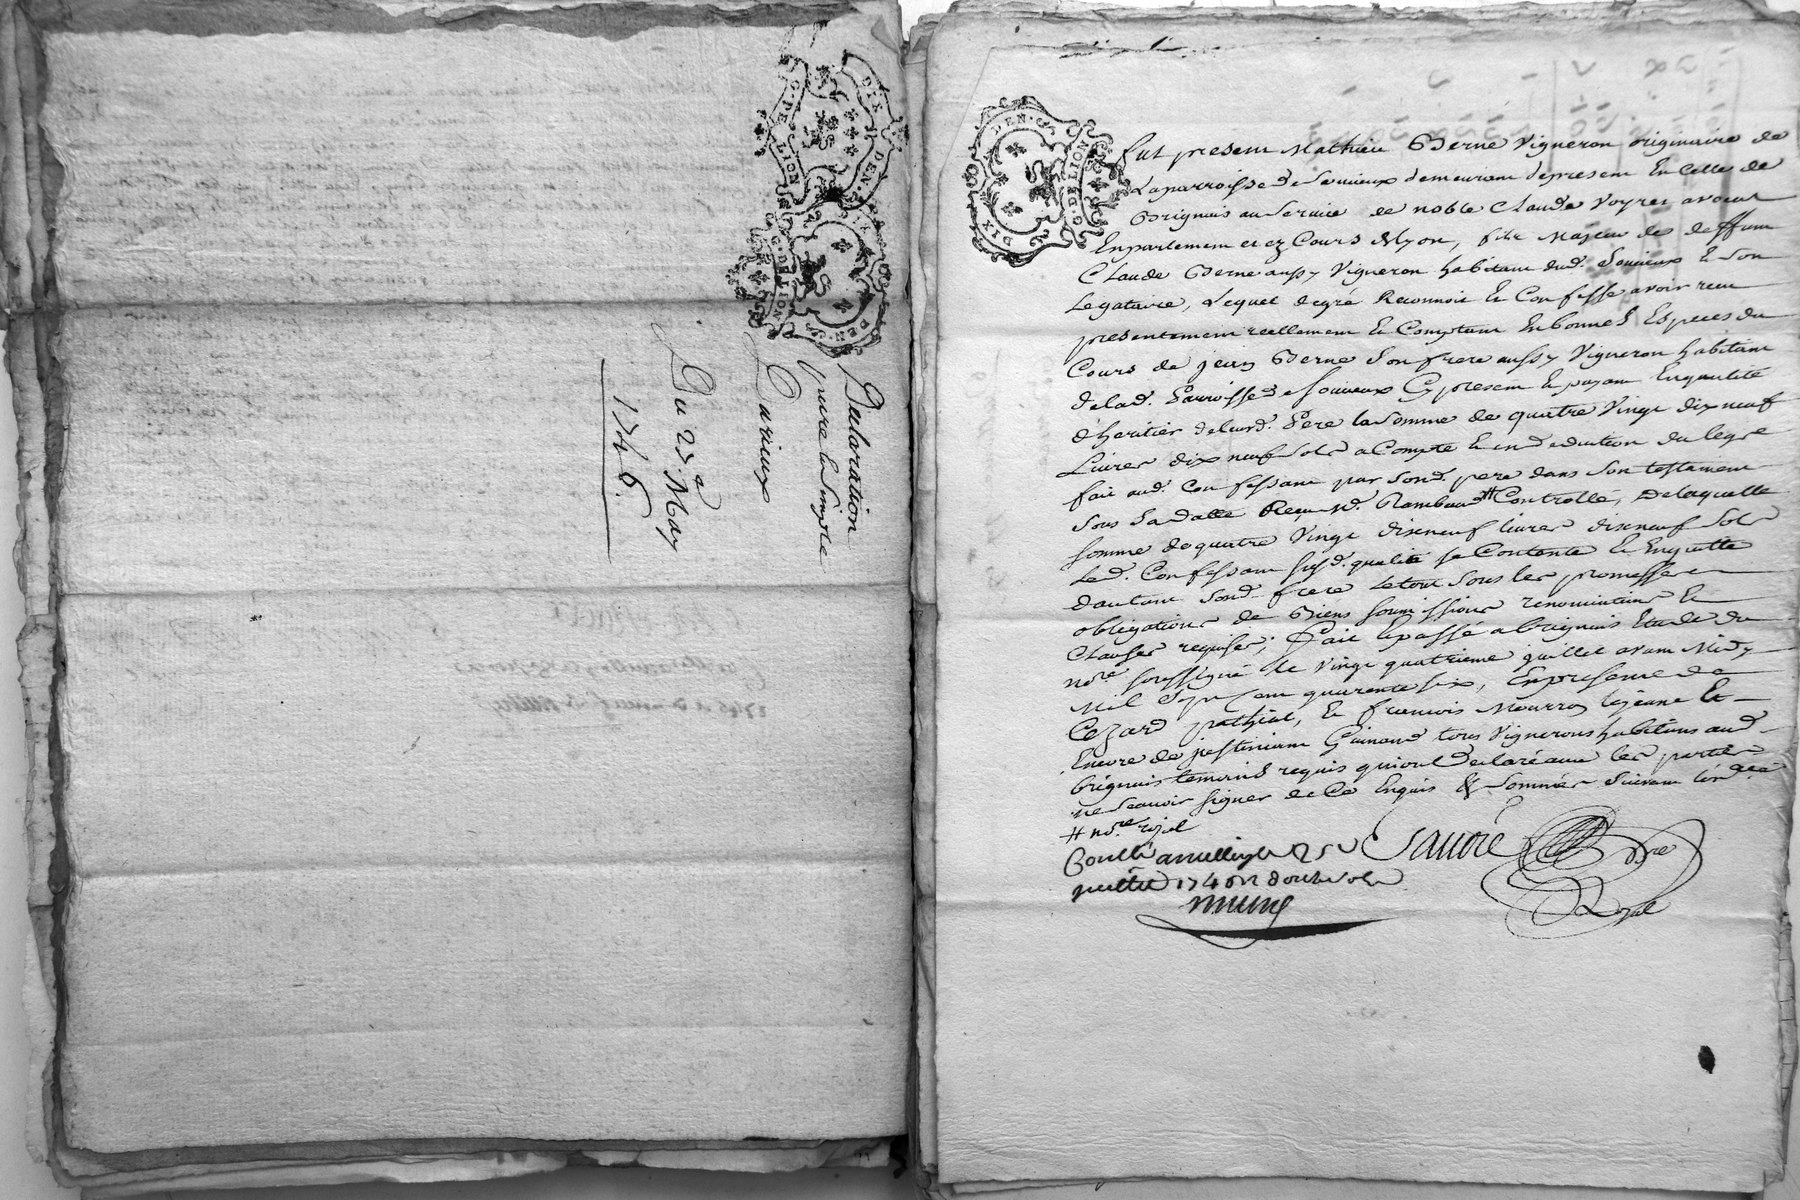 Declaration
pure & simple
Darieux
Du 23e May
1746.
DIX DEN.
G. DE LION
DIX DEN.
G. DE LION
DIX DEN.
G. DE LION
fut present Mathieu Berne Vigneron originaire de
La parroisse de Soucieux demeurant depresent En Celle de
Brignais au Service de noble Claude Voyret avocat
En parlement et ez Cours de Lyon, fils Majeur de deffunt
Claude Berne aussy Vigneron habitant dud. Soucieux & Son
Legataire, Lequel de gré Reconnoit & Confesse avoir receu
presentement reellement & Comptant En bonnes Especes du
Cours de jean Berne Son frere aussy Vigneron habitant
de lad. Parroisse de Soucieux Cy present & payant En qualité
d'heritier de leurd. Pere la Somme de quatre Vingt dix neuf
Livres dix neuf Sols a Compte & en deduction du legs
fait aud. Confessant par Sond. pere dans Son testament
Sous Sa datte Reçu Me. Rambaud # Controllé, De laquelle
Somme de quatre Vingt dixneuf livres dixneuf Sols
Led. Confessant susd. qualité se Contente & En quitte
d'autant Sond. frere Le tout Sous les promesses
obligations de Biens soumissions renonciations &
Clauses requises; fait & passé a Brignais Etude du
no.re soussigné le Vingt quatrieme juillet avant Midy
Mil Sept Cent quarente six, En presence de
Cezard pathial, & francois Mourron lejeune Et
Encore de justinian Guinand tous Vignerons habitans aud.
Brignais temoins requis qui ont declaré avec les parties
ne Scavoir signer de Ce Enquis & Sommés Suivant l'ord.ce
# no.re royal
Conllé a le 25
juillet 1746 R douze sols
Sauvre
N.re
Royal